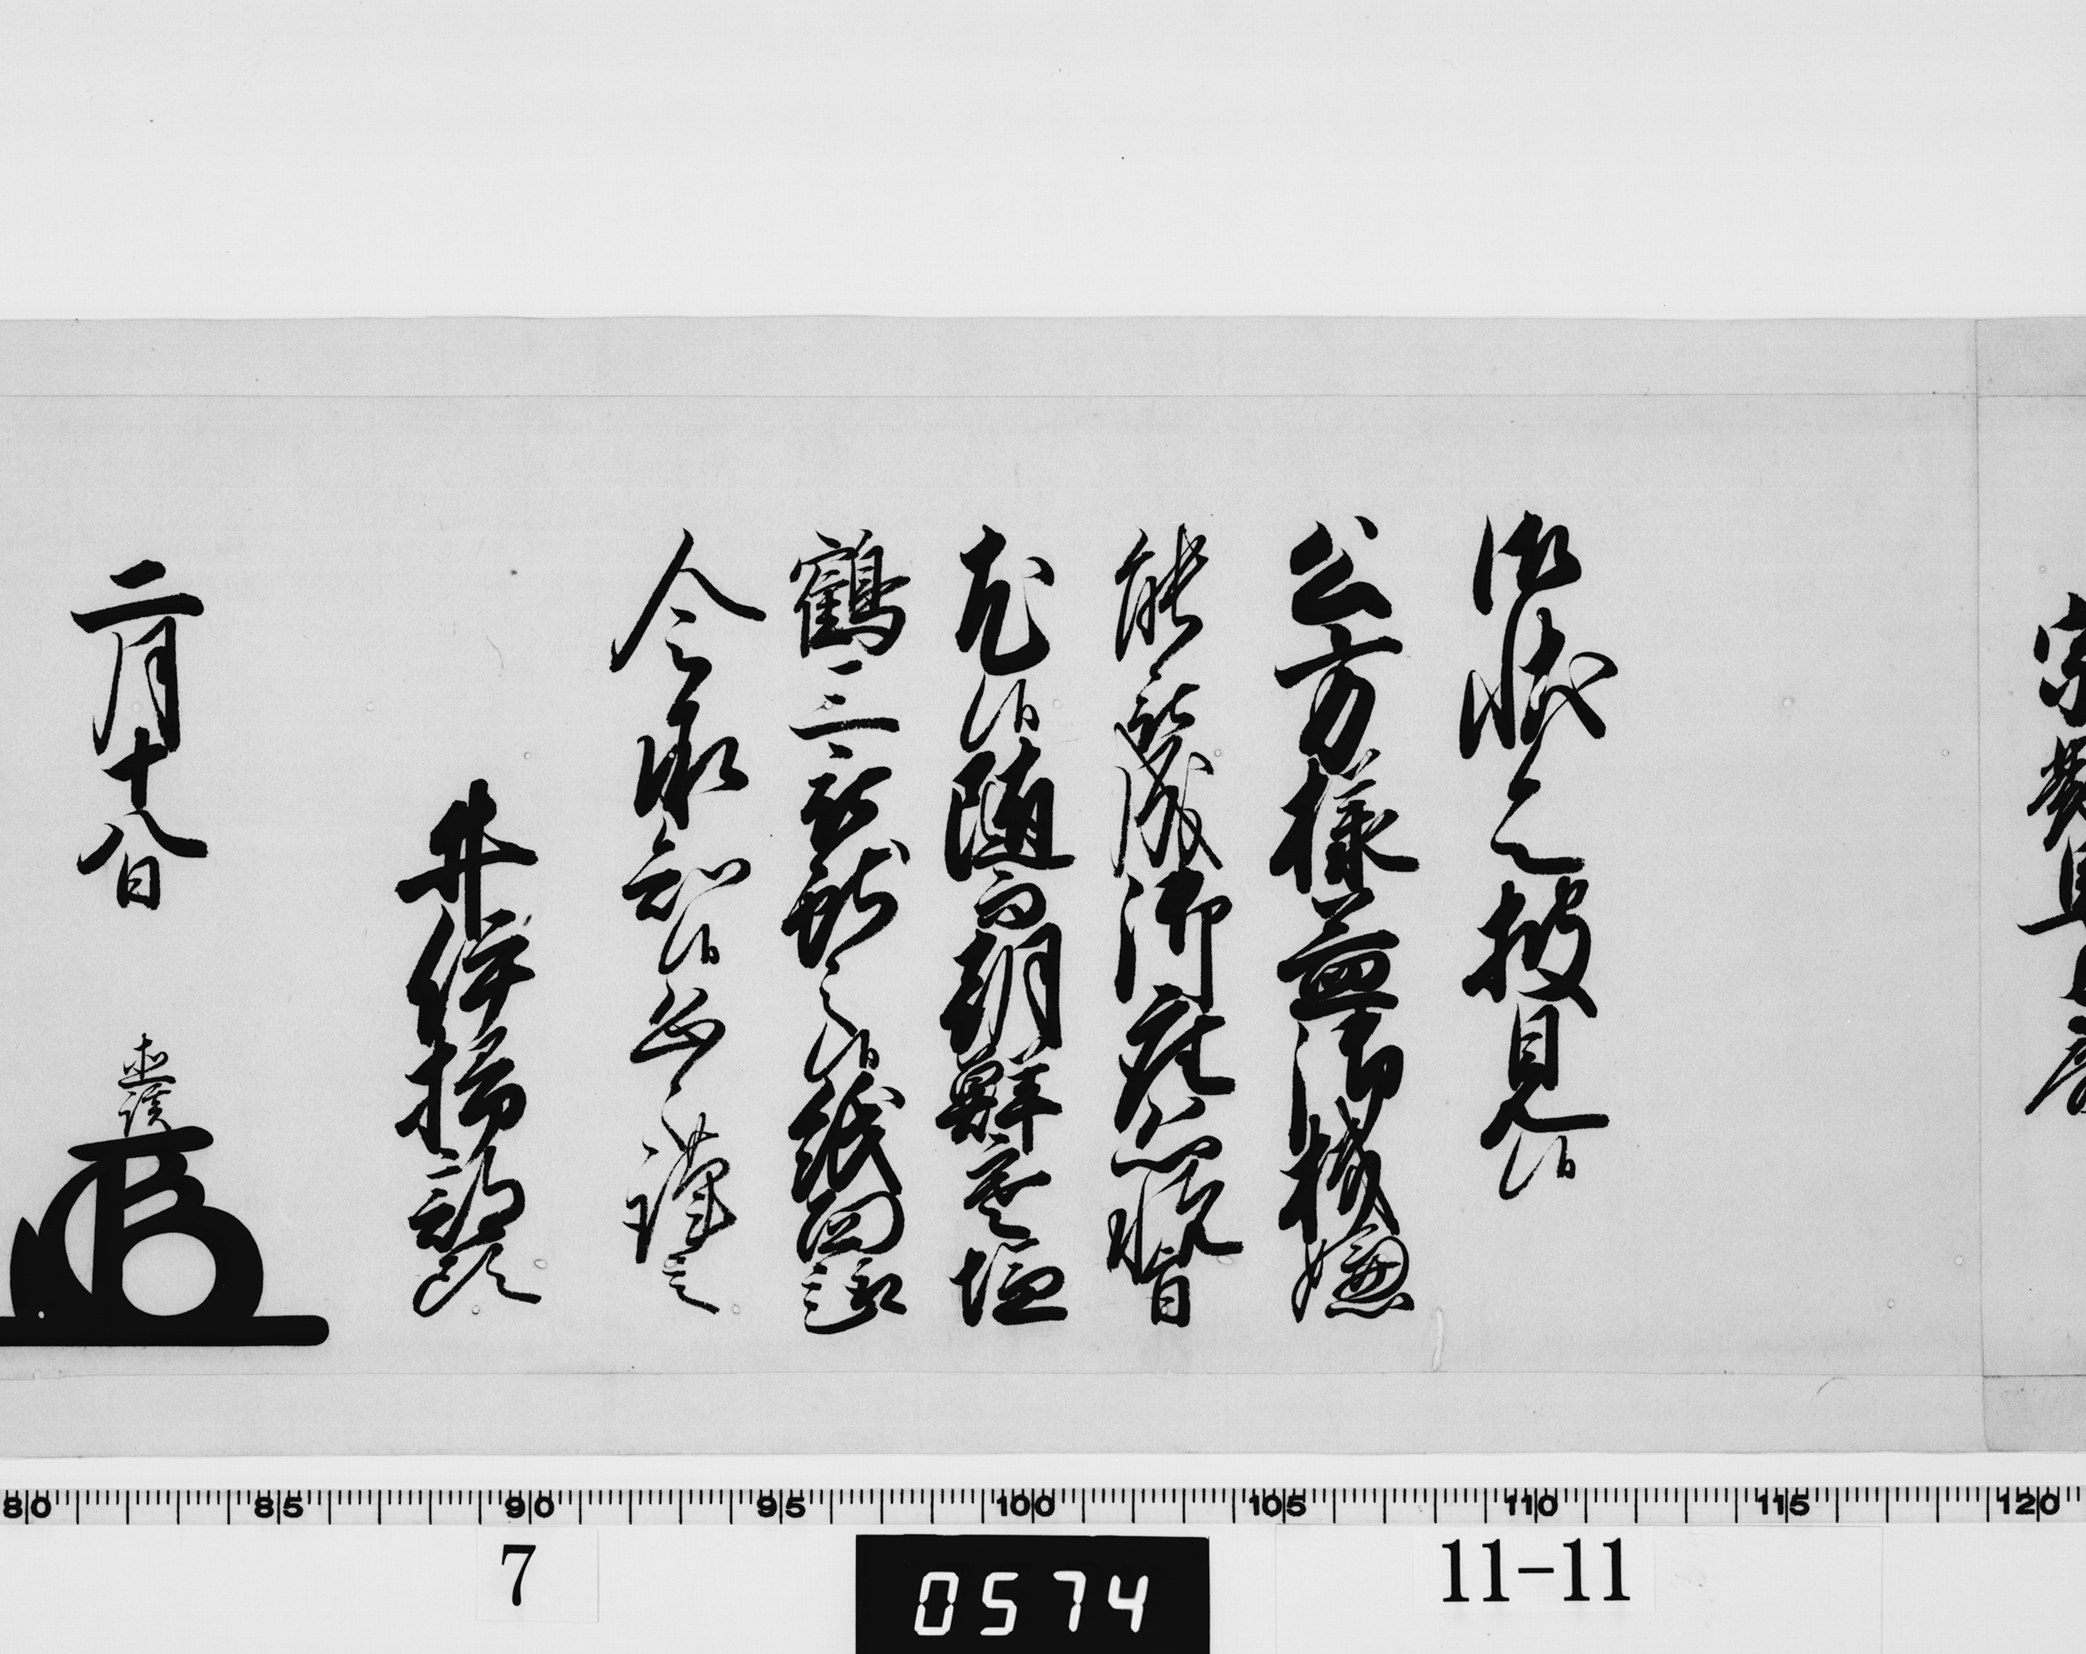 宗對馬守殿
御状令披見候
公方様益御機嫌
能被成御座恐悦旨
尤候随而朝鮮寒塩
鶴三被献之候紙面趣
令承知候恐々謹言
井伊掃部頭
二月十八日 直該
80 85 90 95 100 105 110 115 120
7 0574 11-11